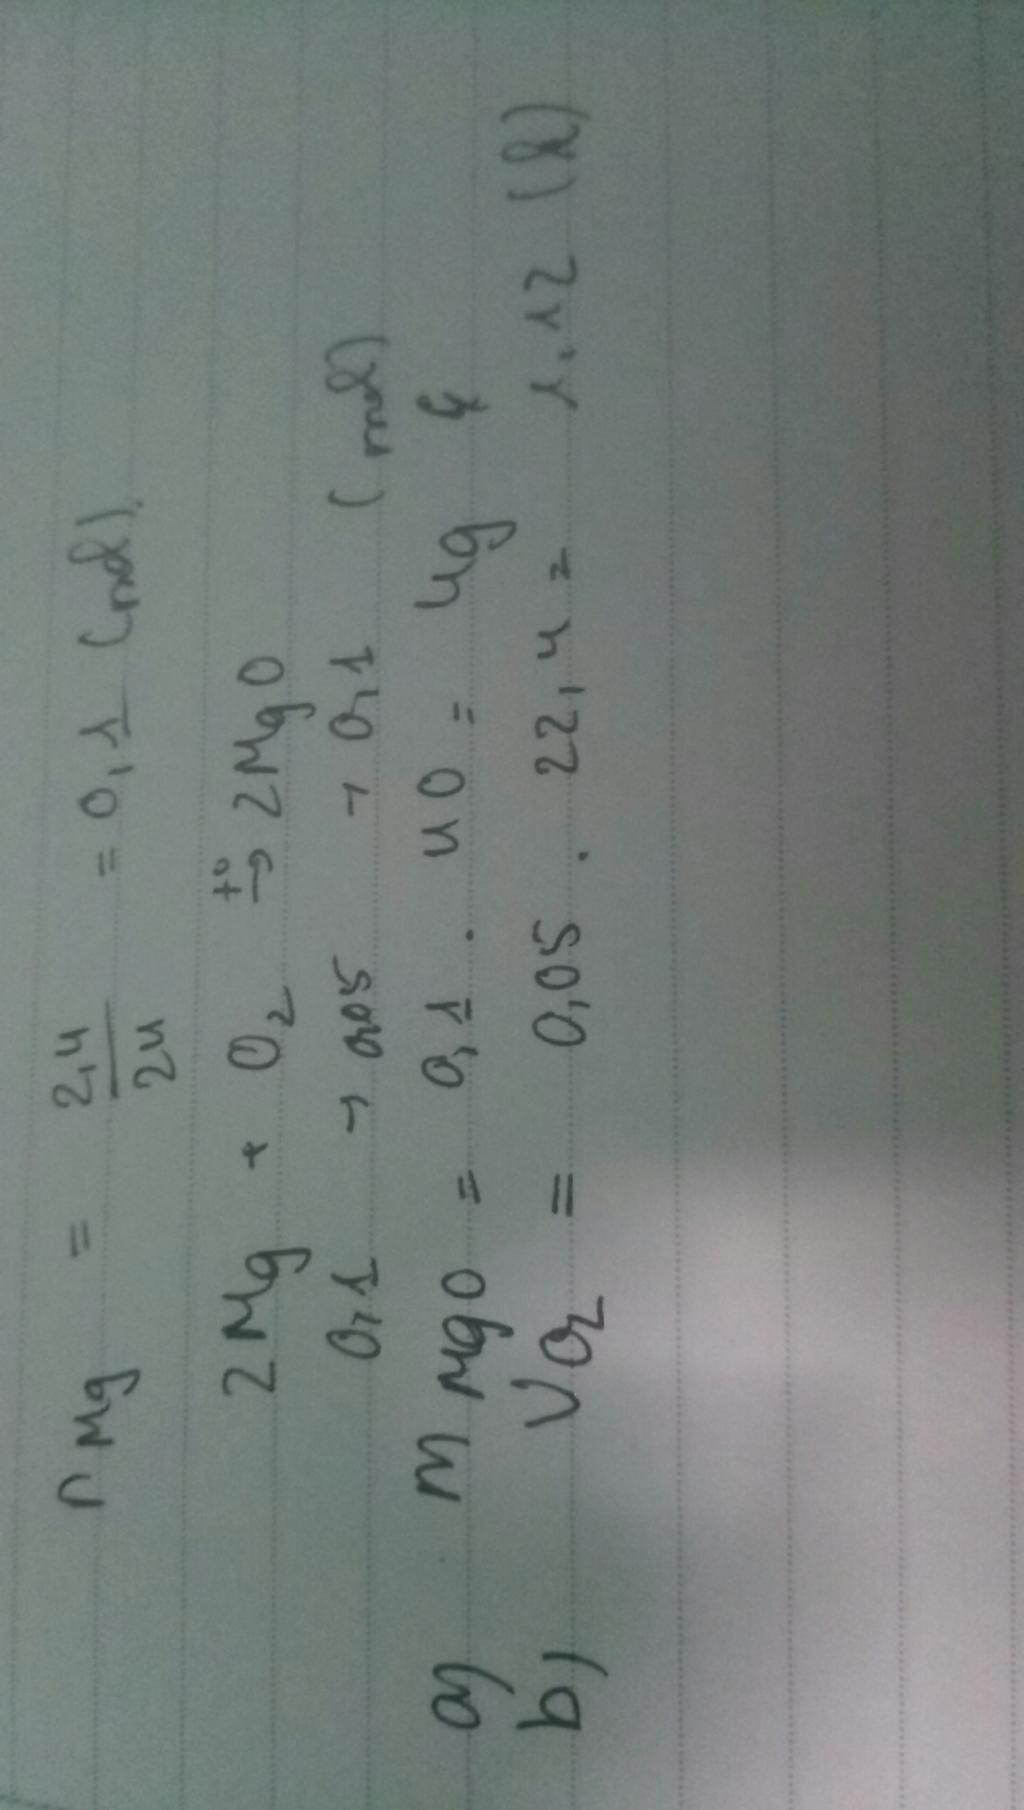 nMg = 2,4/24 = 0,1 (mol).
2Mg + O2 t°→ 2MgO
0,1 → 0,05 → 0,1 (mol)
a) mMgO = 0,1 . 40 = 4g
b) VO2 = 0,05 . 22,4 = 1.12 (l)